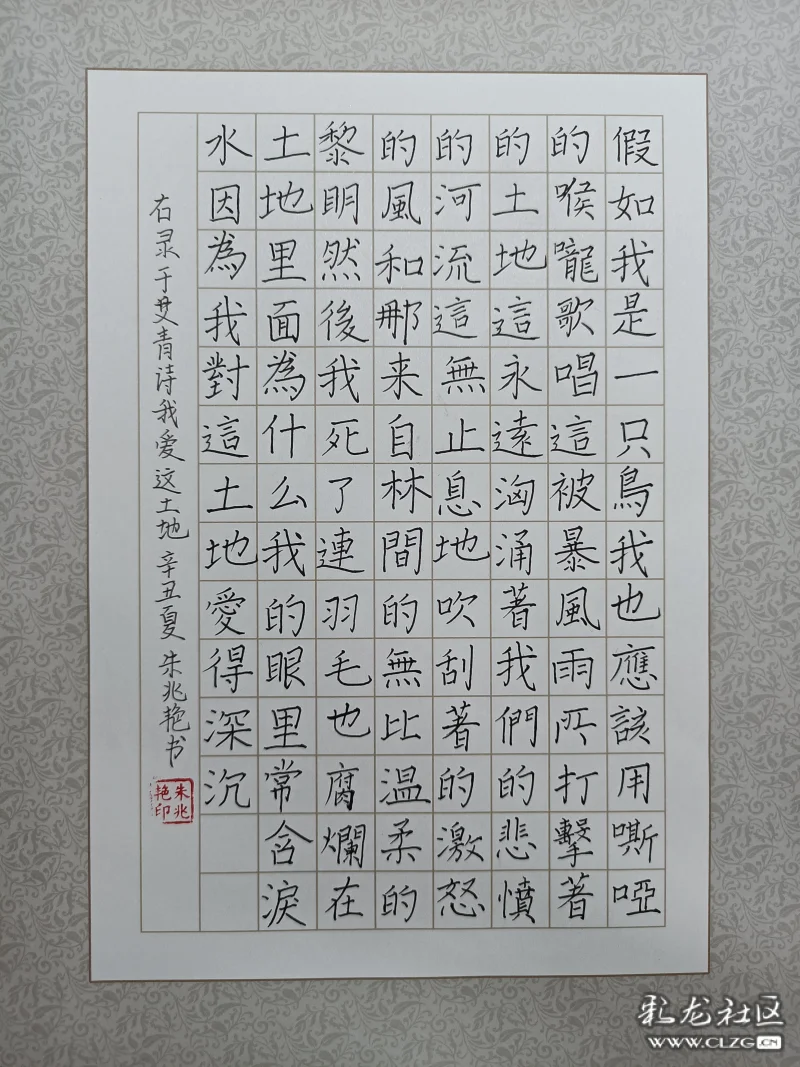 假如我是一只鳥我也應該用嘶啞
的喉嚨歌唱這被暴風雨所打擊著
的土地這永遠洶涌著我們的悲憤
的河流這無止息地吹刮著的激怒
的風和那来自林間的無比温柔的
黎明然後我死了連羽毛也腐爛在
土地里面為什么我的眼里常含淚
水因為我對這土地愛得深沉
右录于艾青诗我爱这土地辛丑夏朱兆艳书
朱兆艳印
彩龙社区
WWW.CLZG.CN